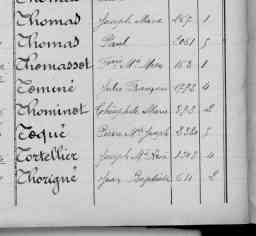 Thomas Joseph Marie 267 1
Thomas Paul 2061 5
Thomasset 152 1
Tominé Jules François 1792 4
Thominet Théophile Marie 893 2
Toqué Pierre Joseph 2220 5
Tortellier Joseph 4
Thorigné Jean Baptiste 611 2